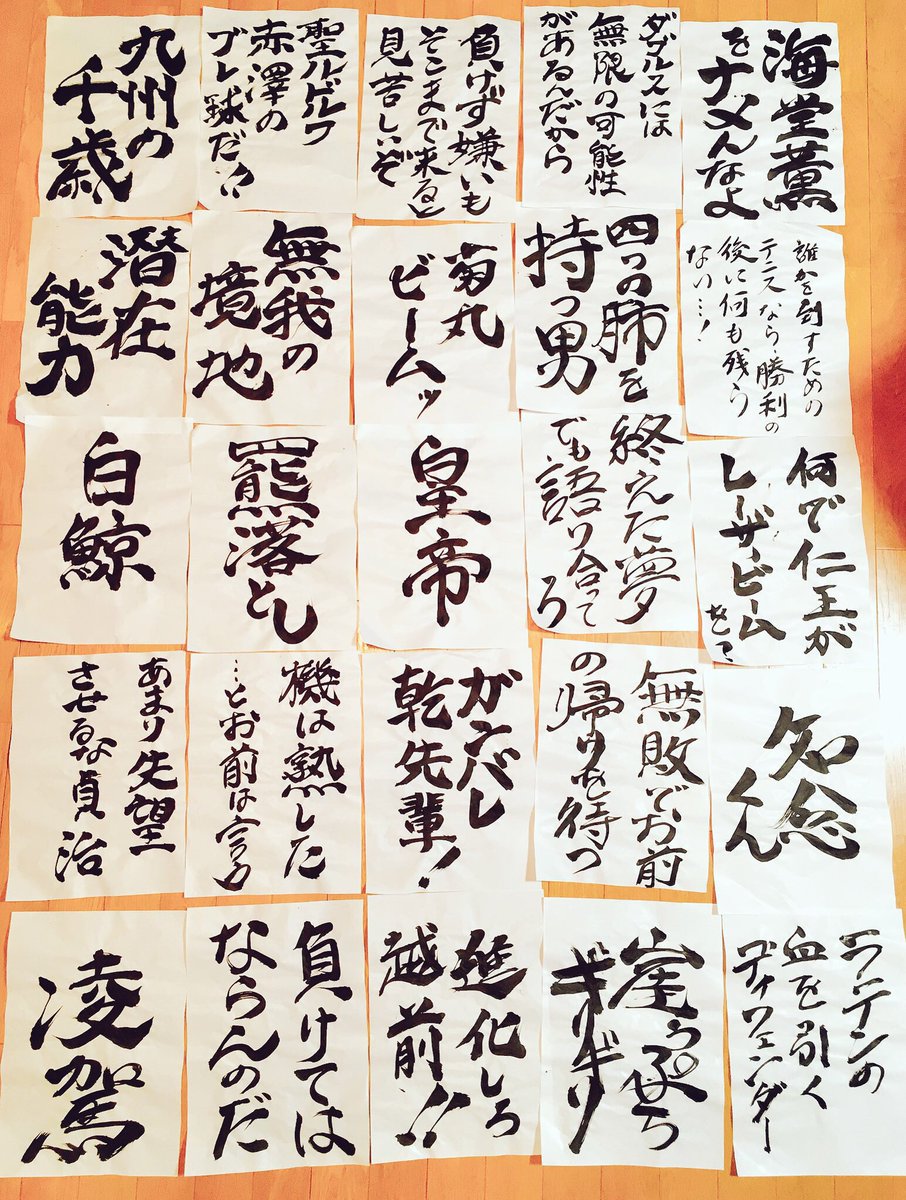 海堂薫
をナメんなよ
ダブルスには
無限の可能性
があるんだから
負けず嫌いも
そこまで来ると
見苦しいぞ
聖ルドルフ
赤澤の
ブレ球だ!!
九州の
千歳
誰かを倒すための
テニスなら勝利の
後に何も残ら
ない…!
四つの肺を
持つ男
菊丸
ビームッ
無我の
境地
潜在
能力
何で仁王が
レーザービーム
を?
終えた夢
でも語り合って
ろ
皇帝
羆落とし
白鯨
知念
くん
無敗でお前
の帰りを待つ
ガンバレ
乾先輩!
機は熟した
…とお前は言う
あまり失望
させるな貞治
ラテンの
血を引く
ディフェンダー
崖っぷち
ギリギリ
進化しろ
越前!!
負けては
ならんのだ
凌駕